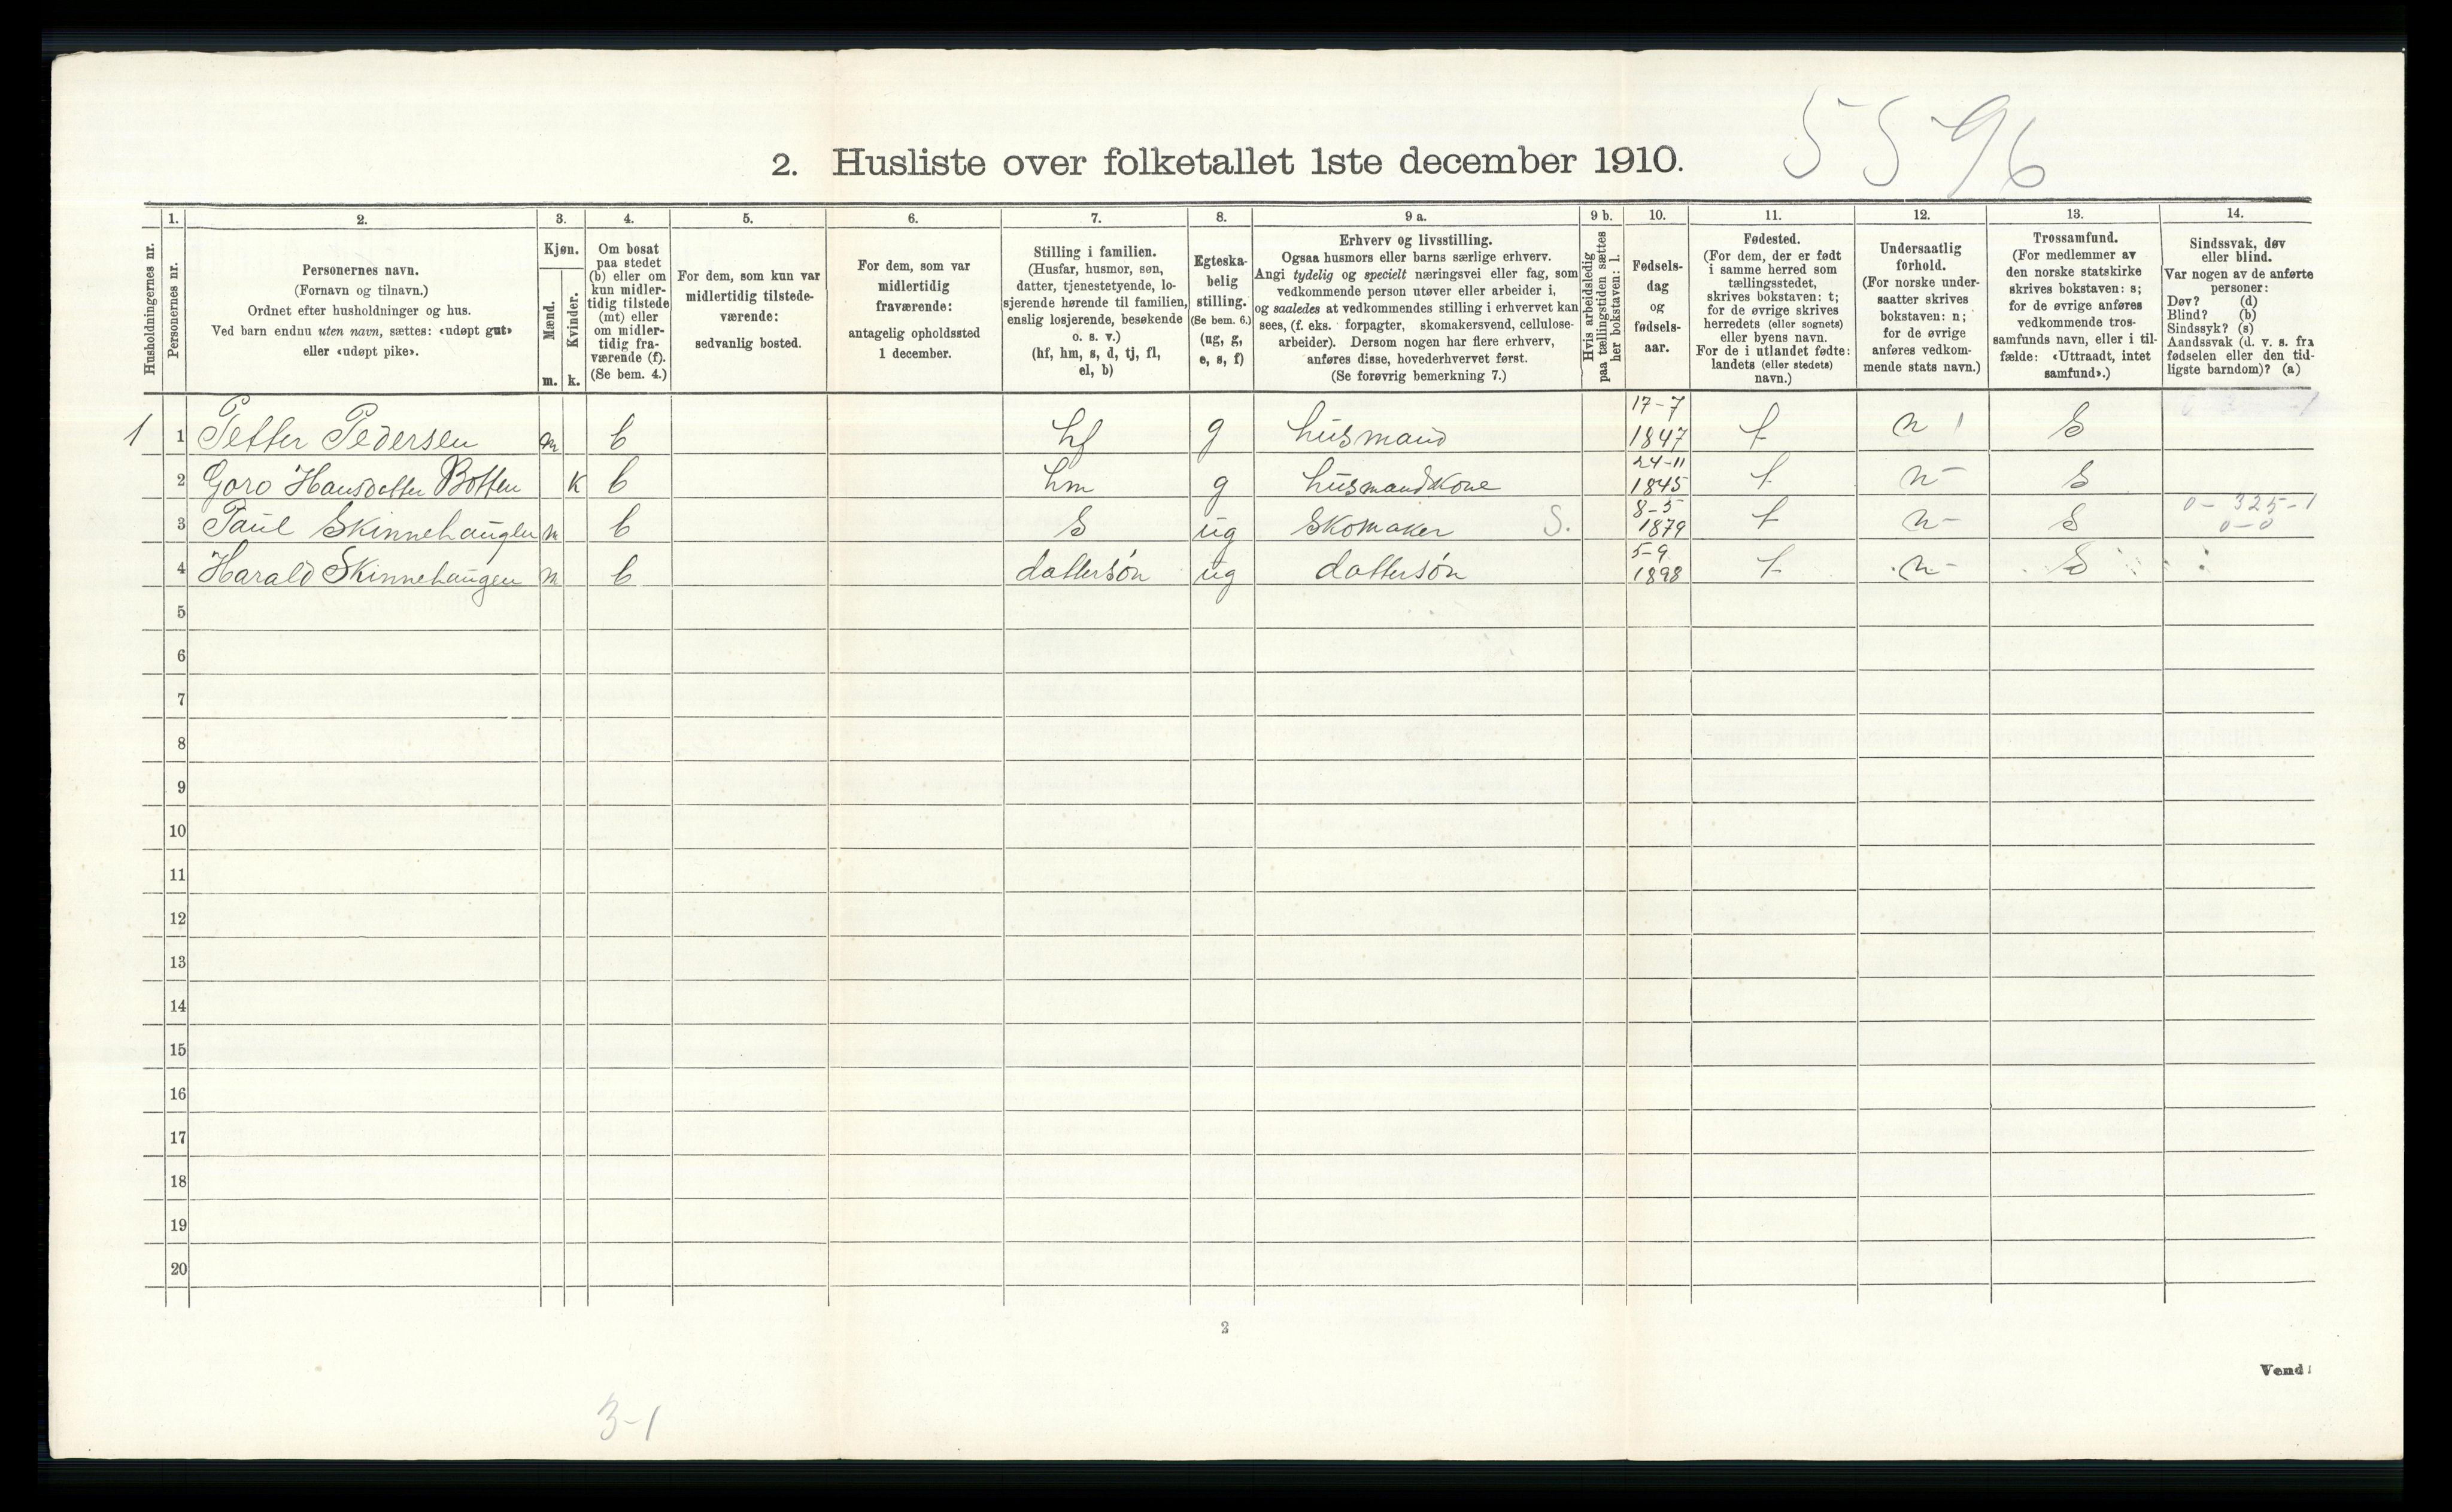 5596
2. Husliste over folketallet 1ste december 1910.
Husholdningernes nr.
1.
Personernes nr.
2.
Personernes navn.
(Fornavn og tilnavn.)
Ordnet efter husholdninger og hus.
Ved barn endnu uten navn, sættes: «udøpt gut»
eller «udøpt pike».
3.
Kjøn.
Mænd.
m.
Kvinder.
k.
4.
Om bosat
paa stedet
(b) eller om
kun midler-
tidig tilstede
(mt) eller
om midler-
tidig fra-
værende (f).
(Se bem. 4.)
5.
For dem, som kun var
midlertidig tilstede-
værende:
sedvanlig bosted.
6.
For dem, som var
midlertidig
fraværende:
antagelig opholdssted
1 december.
7.
Stilling i familien.
(Husfar, husmor, søn,
datter, tjenestetyende, lo-
sjerende hørende til familien,
enslig losjerende, besøkende
o. s. v.)
(hf, hm, s, d, tj, fl,
el, b)
8.
Egteska-
belig
stilling.
(Se bem. 6.)
(ug, g,
e, s, f)
9 a.
Erhverv og livsstilling.
Ogsaa husmors eller barns særlige erhverv.
Angi tydelig og specielt næringsvei eller fag, som
vedkommende person utøver eller arbeider i,
og saaledes at vedkommendes stilling i erhvervet kan
sees, (f. eks. forpagter, skomakersvend, cellulose-
arbeider). Dersom nogen har flere erhverv,
anføres disse, hovederhvervet først.
(Se forøvrig bemerkning 7.)
9 b.
Hvis arbeidsledig
paa tællingstiden sættes
her bokstaven: l.
10.
Fødsels-
dag
og
fødsels-
aar.
11.
Fødested.
(For dem, der er født
i samme herred som
tællingsstedet,
skrives bokstaven: t;
for de øvrige skrives
herredets (eller sognets)
eller byens navn.
For de i utlandet fødte:
landets (eller stedets)
navn.)
12.
Undersaatlig
forhold.
(For norske under-
saatter skrives
bokstaven: n;
for de øvrige
anføres vedkom-
mende stats navn.)
13.
Trossamfund.
(For medlemmer av
den norske statskirke
skrives bokstaven: s;
for de øvrige anføres
vedkommende tros-
samfunds navn, eller i til-
fælde: «Uttraadt, intet
samfund».)
14.
Sindssvak, døv
eller blind.
Var nogen av de anførte
personer:
Døv? (d)
Blind? (b)
Sindssyk? (s)
Aandssvak (d. v. s. fra
fødselen eller den tid-
ligste barndom)? (a)
1 1 Petter Pedersen m b hf g husmand 17-7 1847 t n S
2 Goro Hansdatter Botten k b hm g husmandkone 24-11 1845 t n S
3 Paul Skinnehaugen m b S ug Skomaker S. 8-5 1879 t n S 0-325-1 0-0
4 Harald Skinnehaugen m b dattersón ug dattersón 5-9 1898 t n S
5
6
7
8
9
10
11
12
13
14
15
16
17
18
19
20
2
Vend!
3-1